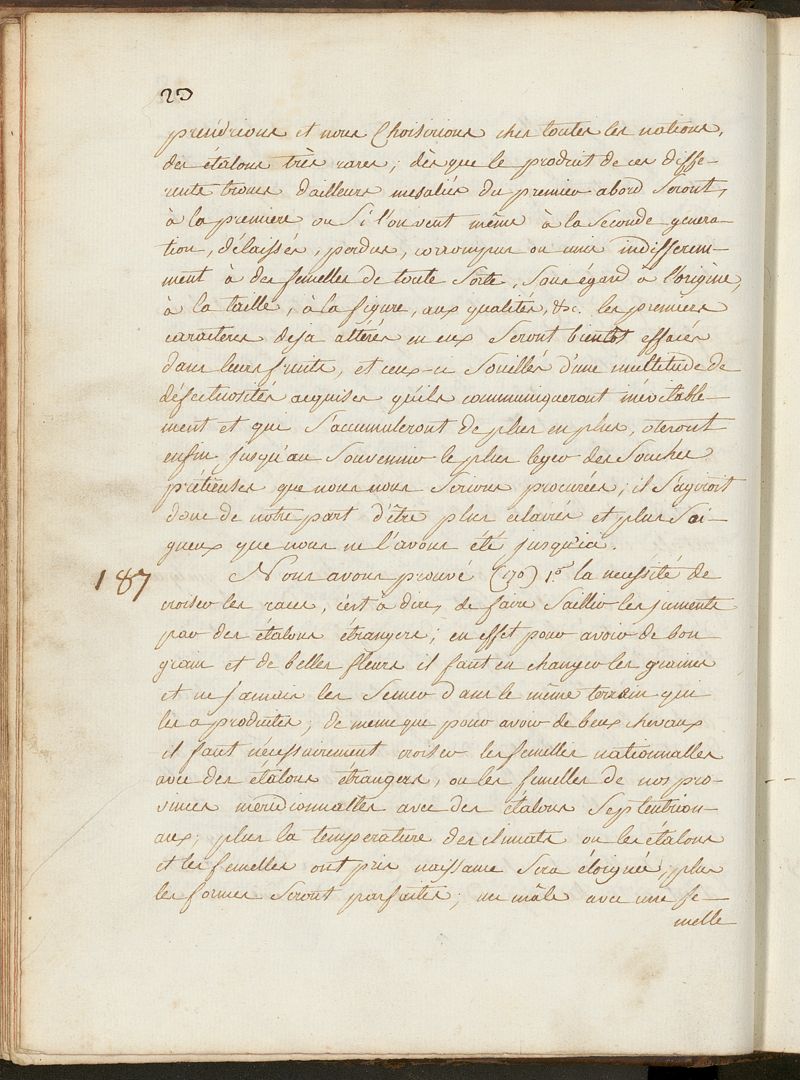 20
prendrions et nous Choisirions chez toutes les nations,
des étalons très rares; dès que le produit de ces diffe-
rents d'ailleurs mesaliés du premier abord Seront,
à la premiere ou Si l'on veut même à la Seconde genera-
tion, délaissés, perdus, corrompus ou unis indifferem-
ment à des femelles de toute Sorte, Sans égard à l'origine,
à la taille, à la figure, aux qualités, &c. les premiers
caracteres deja altérés en eux Seront bientôt effacés
dans leurs fruits, et ceux-ci Souillés d'une multitude de
défectuosités acquises qu'ils communiqueront inévitable-
ment et qui S'accumuleront de plus en plus, oteront
enfin jusqu'au Souvenir le plus leger des Souches
prétieuses que nous nous Serions procurées; il S'agiroit
donc de notre part d'être plus éclairés et plus Soi-
gneux que nous ne l'avons été jusqu'ici.
187 Nous avons prouvé (170) 1.° la necessité de
croiser les races, c'est à dire, de faire Saillir les juments
par des étalons étrangers; en effet pour avoir de bon
grain et de belles fleurs il faut en changer les graines
et ne jamais les Semer dans le même terrain qui
les a produites; de meme que pour avoir de beux chevaux
il faut nécessairement croiser les femelles nationnalles
avec des étalons étrangers, ou les femelles de nos pro-
vinces méridionnalles avec des étalons Septentrion-
aux; plus la température des climats ou les étalons
et les femelles ont pris naissance Sera éloignée, plus
les formes Seront parfaites; un mâle avec une fe-
melle